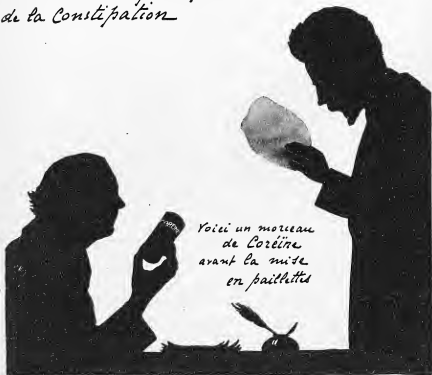 de la Constipation
Voici un morceau
de Coréïne
avant la mise
en paillettes